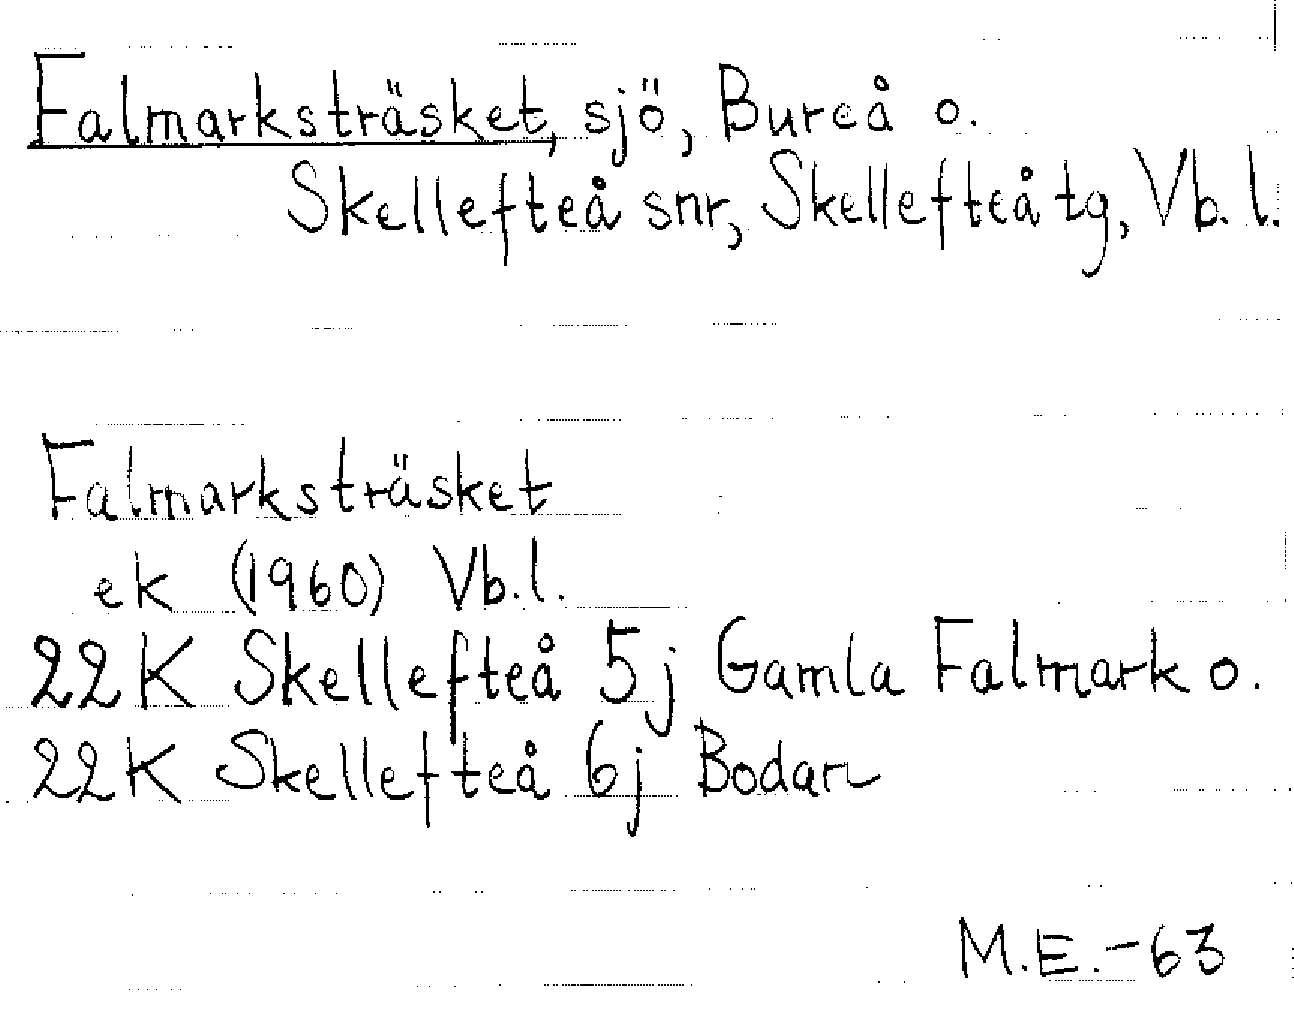 Falmarksträsket, sjö, Bureå o.
Skellefteå snr, Skellefteå tg, Vb. l.
Falmarksträsket
ek (1960) Vb.l.
22K Skellefteå 5j Gamla Falmark o.
22K Skellefteå 6j Bodan
M.E.-63